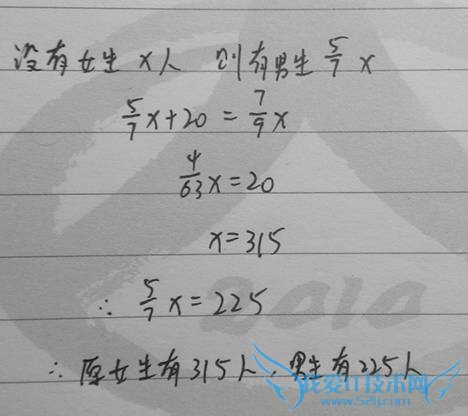 没有女生 x人 则有男生 5/7 x
5/7x+20=7/9x
4/63x=20
x=315
∴ 5/7x=225
2010
∴ 原女生有315人,男生有225人
我爱IT技术网
www.52ij.com